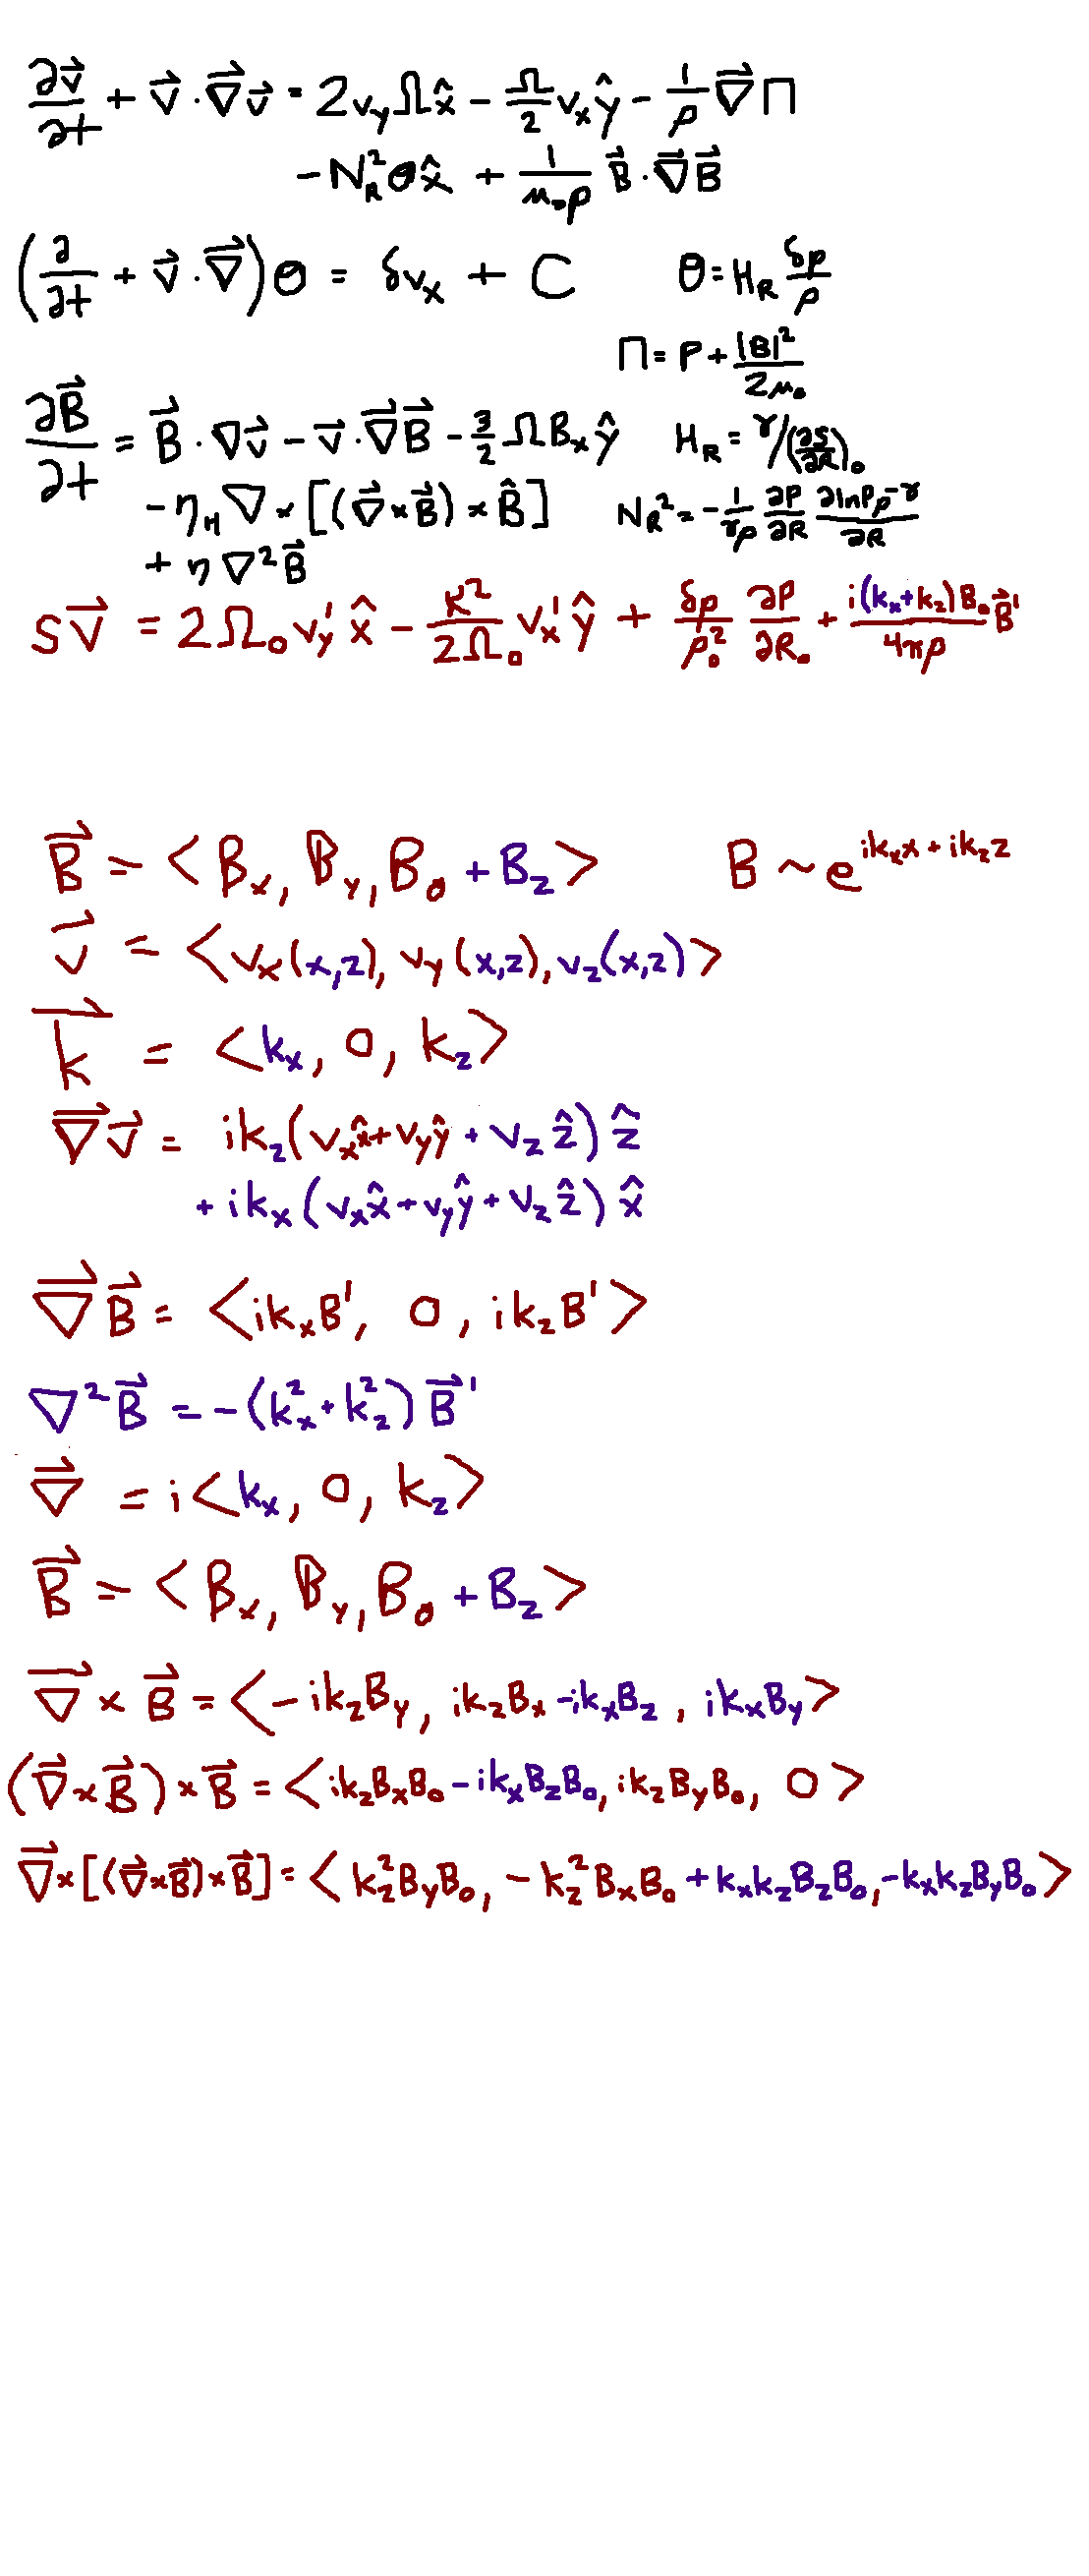 ∂v⃗/∂t + v⃗ · ∇⃗v⃗ = 2v_yΩx̂ − Ω/2 v_xŷ − 1/ρ ∇⃗Π
− N_R²θx̂ + 1/(μ₀ρ) B⃗ · ∇⃗B⃗
(∂/∂t + v⃗ · ∇⃗)θ = δv_x + C    θ = H_R δρ/ρ
Π = P + |B|²/2μ₀
∂B⃗/∂t = B⃗ · ∇⃗v⃗ − v⃗ · ∇⃗B⃗ − 3/2 ΩB_xŷ    H_R = γ/(∂S/∂R)₀
− η_H ∇ × [(∇⃗ × B⃗) × B̂]    N_R² = −1/(γρ) ∂P/∂R ∂lnPρ^−γ/∂R
+ η∇²B⃗
sv⃗ = 2Ω₀v_y'x̂ − κ²/2Ω₀ v_x'ŷ + δρ/ρ₀² ∂P/∂R₀ + i(k_x+k_z)B₀B⃗'/4πρ
B⃗ = <B_x, B_y, B₀ + B_z>    B ~ e^{ik_xx + ik_zz}
v⃗ = <v_x(x,z), v_y(x,z), v_z(x,z)>
k⃗ = <k_x, 0, k_z>
∇⃗v⃗ = ik_z(v_xx̂ + v_yŷ + v_zẑ)ẑ
+ ik_x(v_xx̂ + v_yŷ + v_zẑ)x̂
∇⃗B⃗ = <ik_xB', 0, ik_zB'>
∇²B⃗ = −(k_x² + k_z²)B⃗'
∇⃗ = i<k_x, 0, k_z>
B⃗ = <B_x, B_y, B₀ + B_z>
∇⃗ × B⃗ = <−ik_zB_y, ik_zB_x − ik_xB_z, ik_xB_y>
(∇⃗ × B⃗) × B⃗ = <ik_zB_xB₀ − ik_xB_zB₀, ik_zB_yB₀, 0>
∇⃗ × [(∇⃗ × B⃗) × B⃗] = <k_z²B_yB₀, −k_z²B_xB₀ + k_xk_zB_zB₀, −k_xk_zB_yB₀>